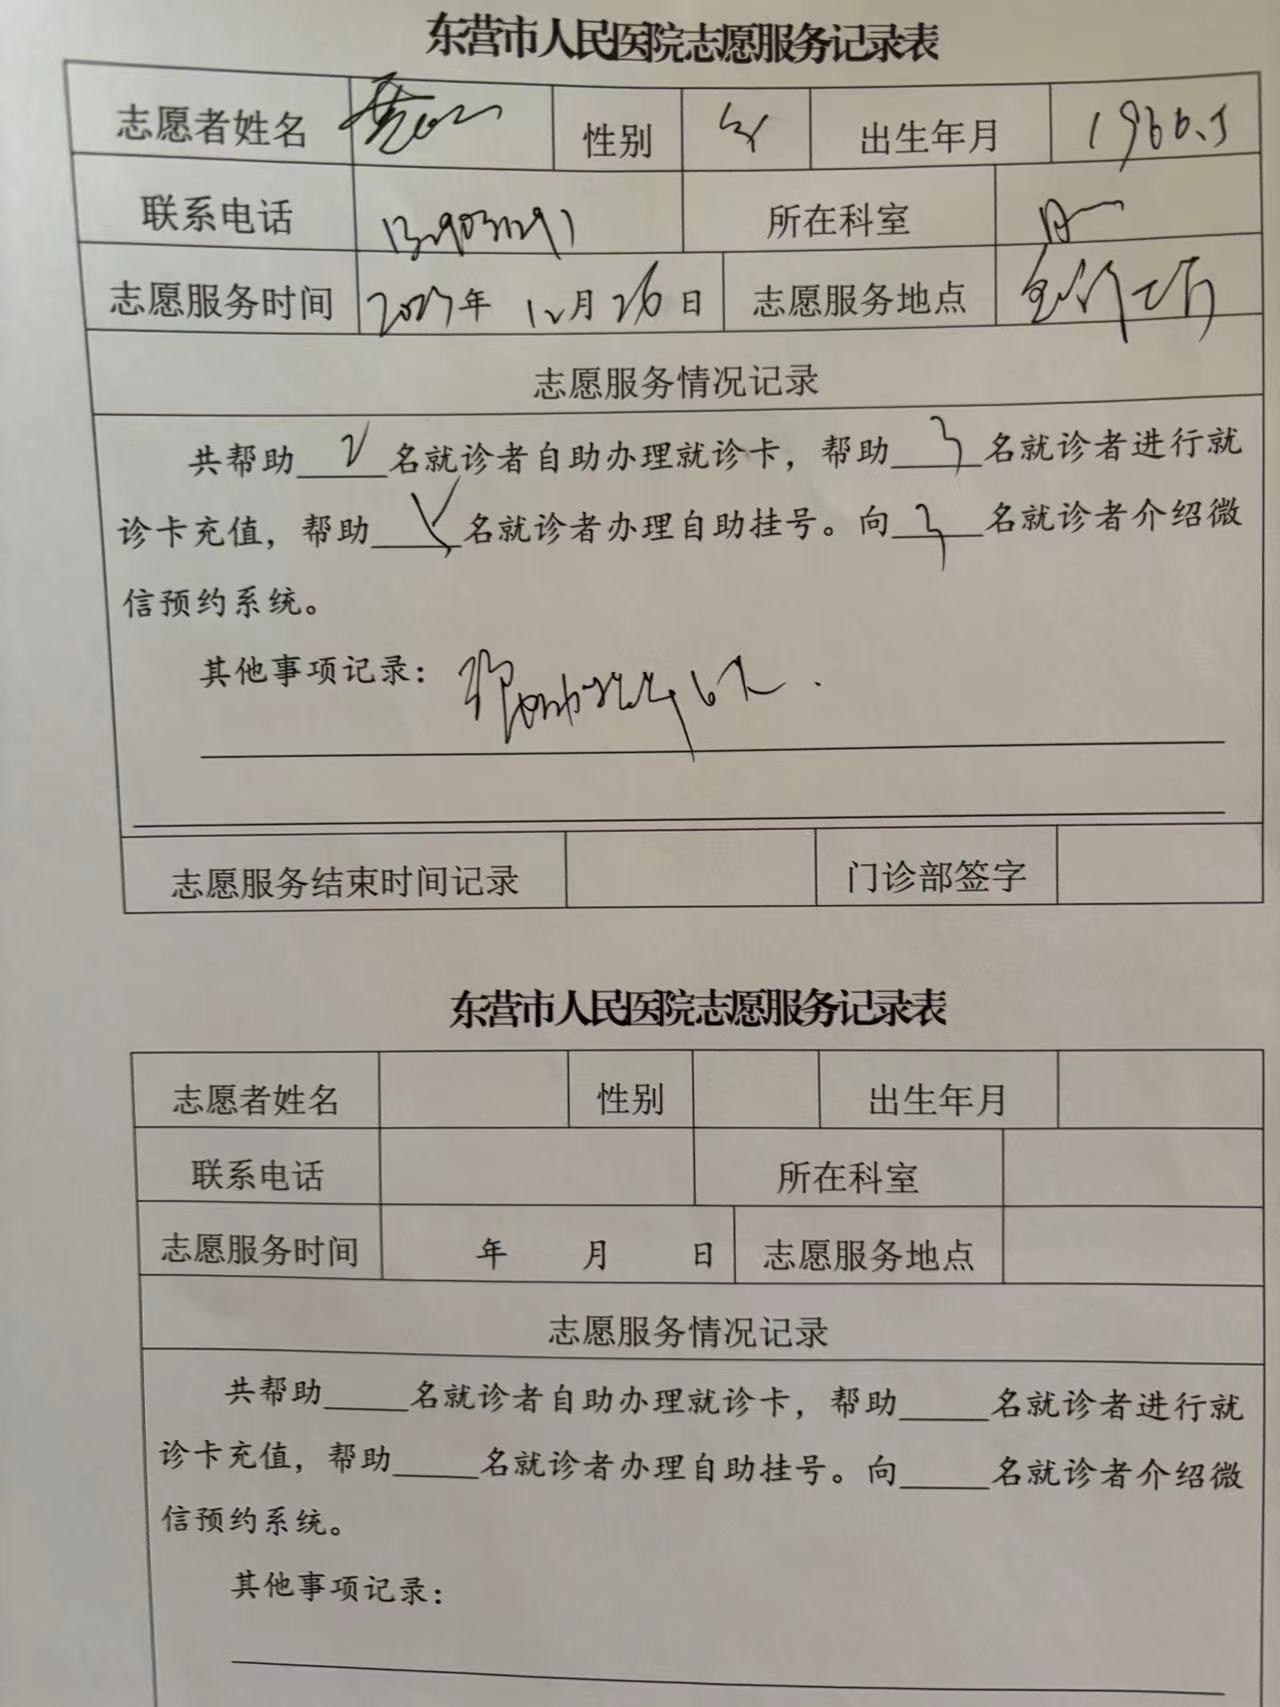 东营市人民医院志愿服务记录表
志愿者姓名 性别 女 出生年月 1966.5
联系电话 所在科室
志愿服务时间 年 12月26日 志愿服务地点
志愿服务情况记录
共帮助 2 名就诊者自助办理就诊卡，帮助 3 名就诊者进行就
诊卡充值，帮助 名就诊者办理自助挂号。向 3 名就诊者介绍微
信预约系统。
其他事项记录：
志愿服务结束时间记录 门诊部签字
东营市人民医院志愿服务记录表
志愿者姓名 性别 出生年月
联系电话 所在科室
志愿服务时间 年 月 日 志愿服务地点
志愿服务情况记录
共帮助_____名就诊者自助办理就诊卡，帮助_____名就诊者进行就
诊卡充值，帮助_____名就诊者办理自助挂号。向_____名就诊者介绍微
信预约系统。
其他事项记录：